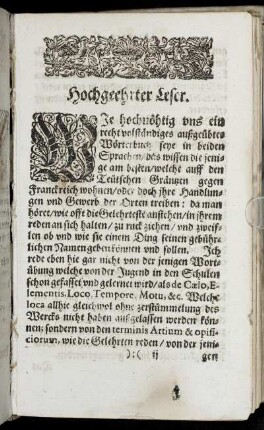 Hochgeehrter Leser.
WIe hochnöhtig vns ein
recht volständiges außgeübtes
Wörterbuch seye in beiden
Sprachen, das wissen die jeni-
ge am besten/welche auff den
Teütschen Gräntzen gegen
Franckreich wohnen/oder doch ihre Handlun-
gen vnd Gewerb der Orten treiben: da man
höret/wie offt die Gelehrteste anstehen/in ihrem
reden an sich halten/ zu ruck ziehen/ vnd zweif-
len ob vnd wie sie einem Ding seinen gebühr-
lichen Namen geben können vnd sollen. Ich
rede eben hie gar nicht von der jenigen Wort-
übung welche von der Jugend in den Schulen
schon gefasset vnd gelernet wird/als de Cælo, E-
lementis, Loco, Tempore, Motu, &c. Welche
loca allhie gleichwol ohne zerstümmelung des
Wercks nicht haben außgelassen werden kön-
nen; sondern von den terminis Artium & opifi-
ciorum, wie die Gelehrten reden/ von der jeni-
):( ij gen